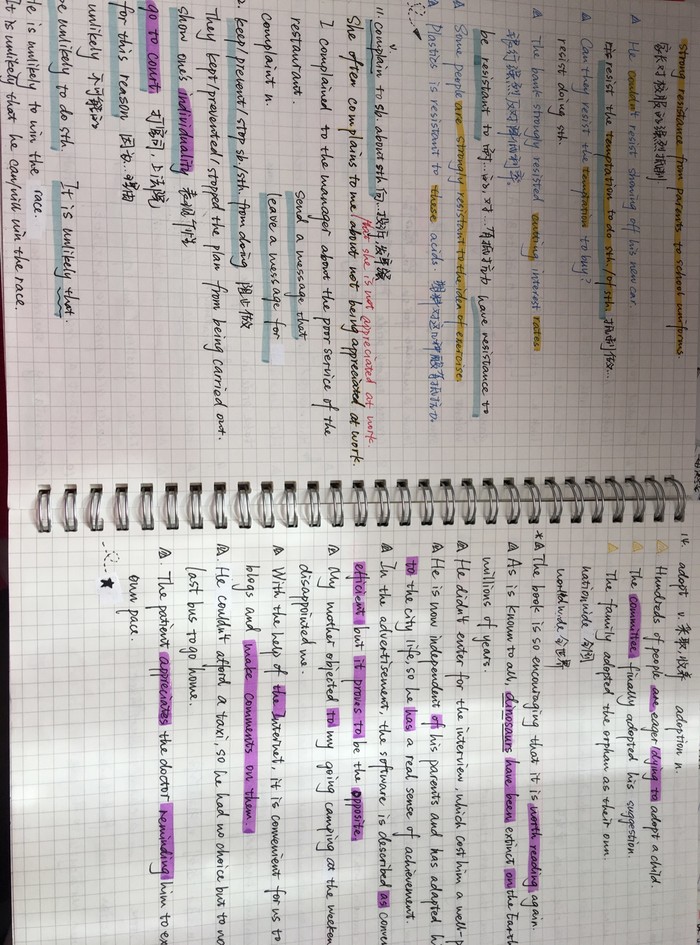 strong resistance from parents to school uniforms.
家长对校服的强烈抵制
He couldn't resist showing off his new car.
resist the temptation to do sth/of sth 抵制做...
Can they resist the temptation to buy?
resist doing sth
The bank strongly resisted cutting interest rates.
银行强烈反对降低利率。
be resistant to 对...有抵抗力 have resistance to
Some people are strongly resistant to the idea of exercise.
Plastics is resistant to these acids.
11. complain to sb. about sth 向...投诉
v.
that she is not appreciated at work.
She often complains to me about not being appreciated at work.
I complained to the manager about the poor service of the
restaurant.
complaint n.
send a message that
leave a message for
keep/prevent/stop sb./sth. from doing 阻止做
They kept/prevented/stopped the plan from being carried out.
show one's individuality 表现个性
go to court 打官司,上法院
for this reason 因为...理由
unlikely 不可能的
be unlikely to do sth. It is unlikely that.
He is unlikely to win the race.
It is unlikely that he can/will win the race.
14. adopt v. 采取,收养 adoption n.
Hundreds of people are eager/dying to adopt a child.
The committee finally adopted his suggestion.
The family adopted the orphan as their own.
nationwide 全国
worldwide 全世界
The book is so encouraging that it is worth reading again.
As is known to all, dinosaurs have been extinct on the Earth
millions of years.
He didn't enter for the interview, which cost him a well-p
He is now independent of his parents and has adapted h
to the city life, so he has a real sense of achievement.
In the advertisement, the software is described as conven
efficient but it proves to be the opposite.
My mother objected to my going camping at the weekend
disappointed me.
With the help of the Internet, it is convenient for us to
blogs and make comments on them.
He couldn't afford a taxi, so he had no choice but to
last bus to go home.
The patient appreciates the doctor reminding him to ex
own pace.